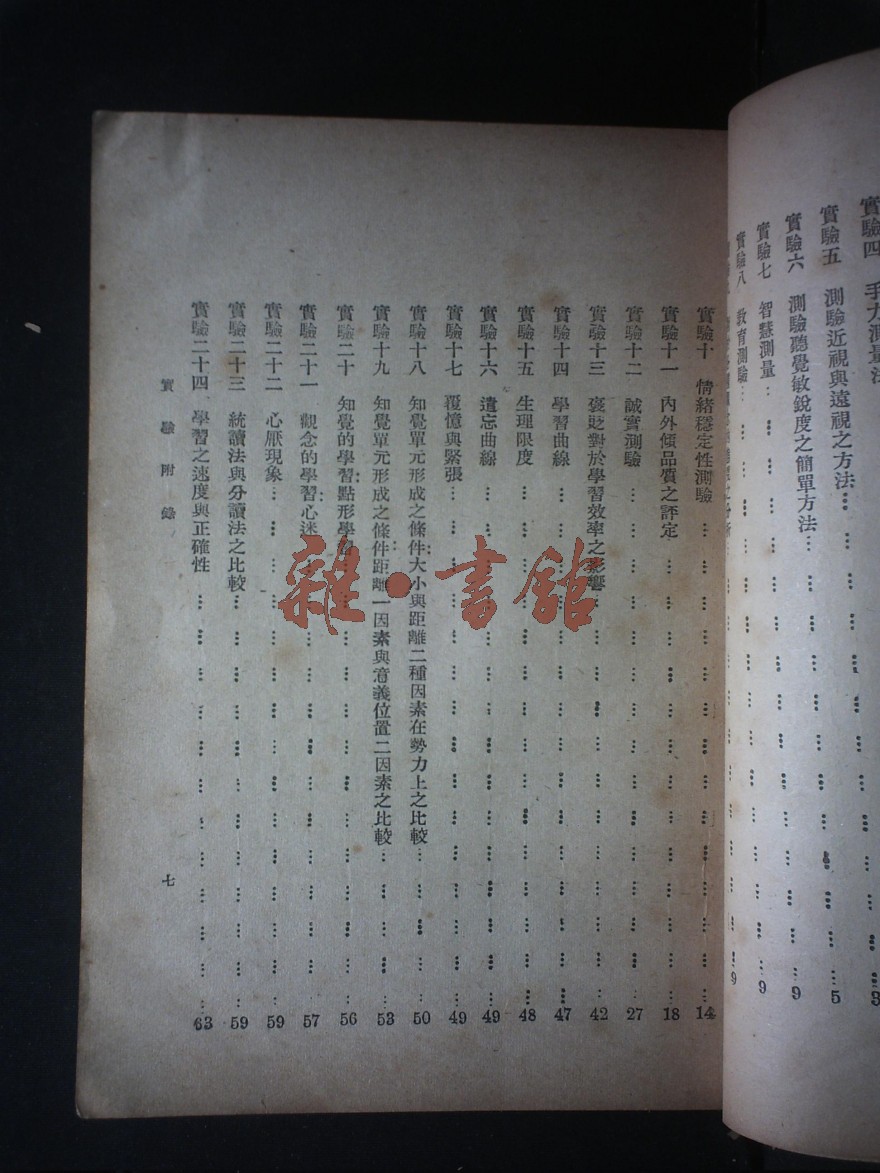 實驗四 手力測量法 3
實驗五 測驗近視與遠視之方法 5
實驗六 測驗聽覺敏銳度之簡單方法 9
實驗七 智慧測量 9
實驗八 教育測驗 9
實驗十 情緒穩定性測驗 14
實驗十一 內外傾品質之評定 18
實驗十二 誠實測驗 27
實驗十三 褒貶對於學習效率之影響 42
實驗十四 學習曲線 47
實驗十五 生理限度 48
實驗十六 遺忘曲線 49
實驗十七 覆憶與緊張 49
實驗十八 知覺單元形成之條件大小與距離二種因素在勢力上之比較 50
實驗十九 知覺單元形成之條件距離一因素與意義位置二因素之比較 53
實驗二十 知覺的學習點形學習 56
實驗二十一 觀念的學習心迷 57
實驗二十二 心厭現象 59
實驗二十三 統讀法與分讀法之比較 59
實驗二十四 學習之速度與正確性 63
實驗附錄 七
雜·書館